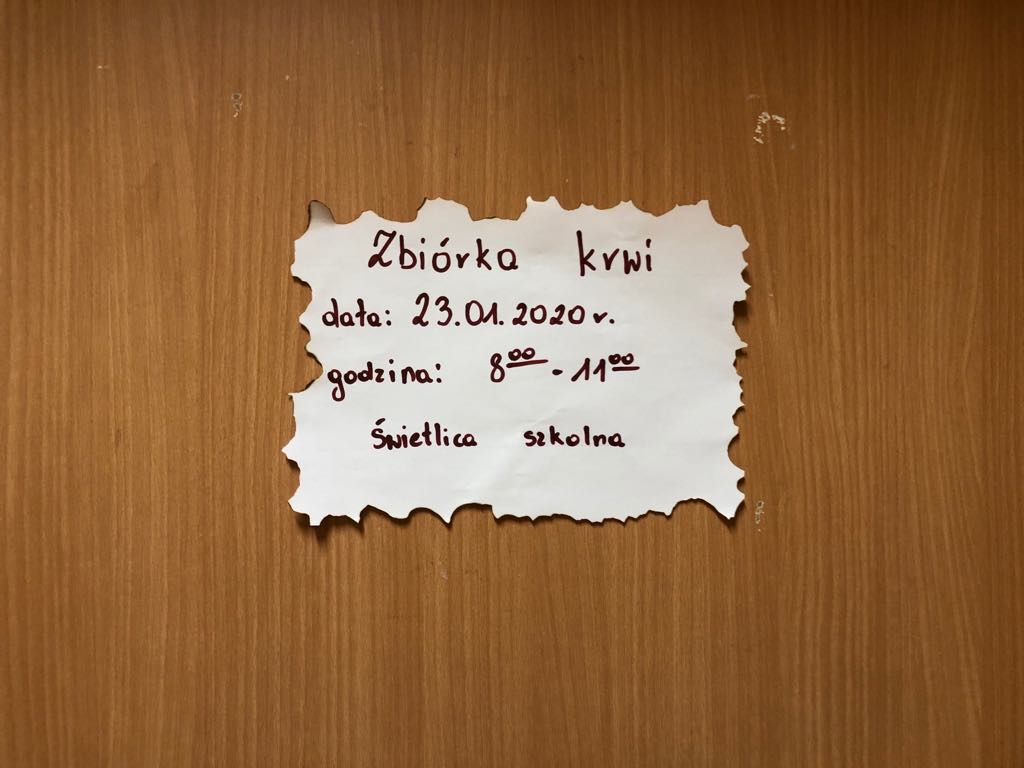 Zbiórka krwi
data: 23.01.2020 r.
godzina: 8⁰⁰ - 11⁰⁰
Świetlica szkolna